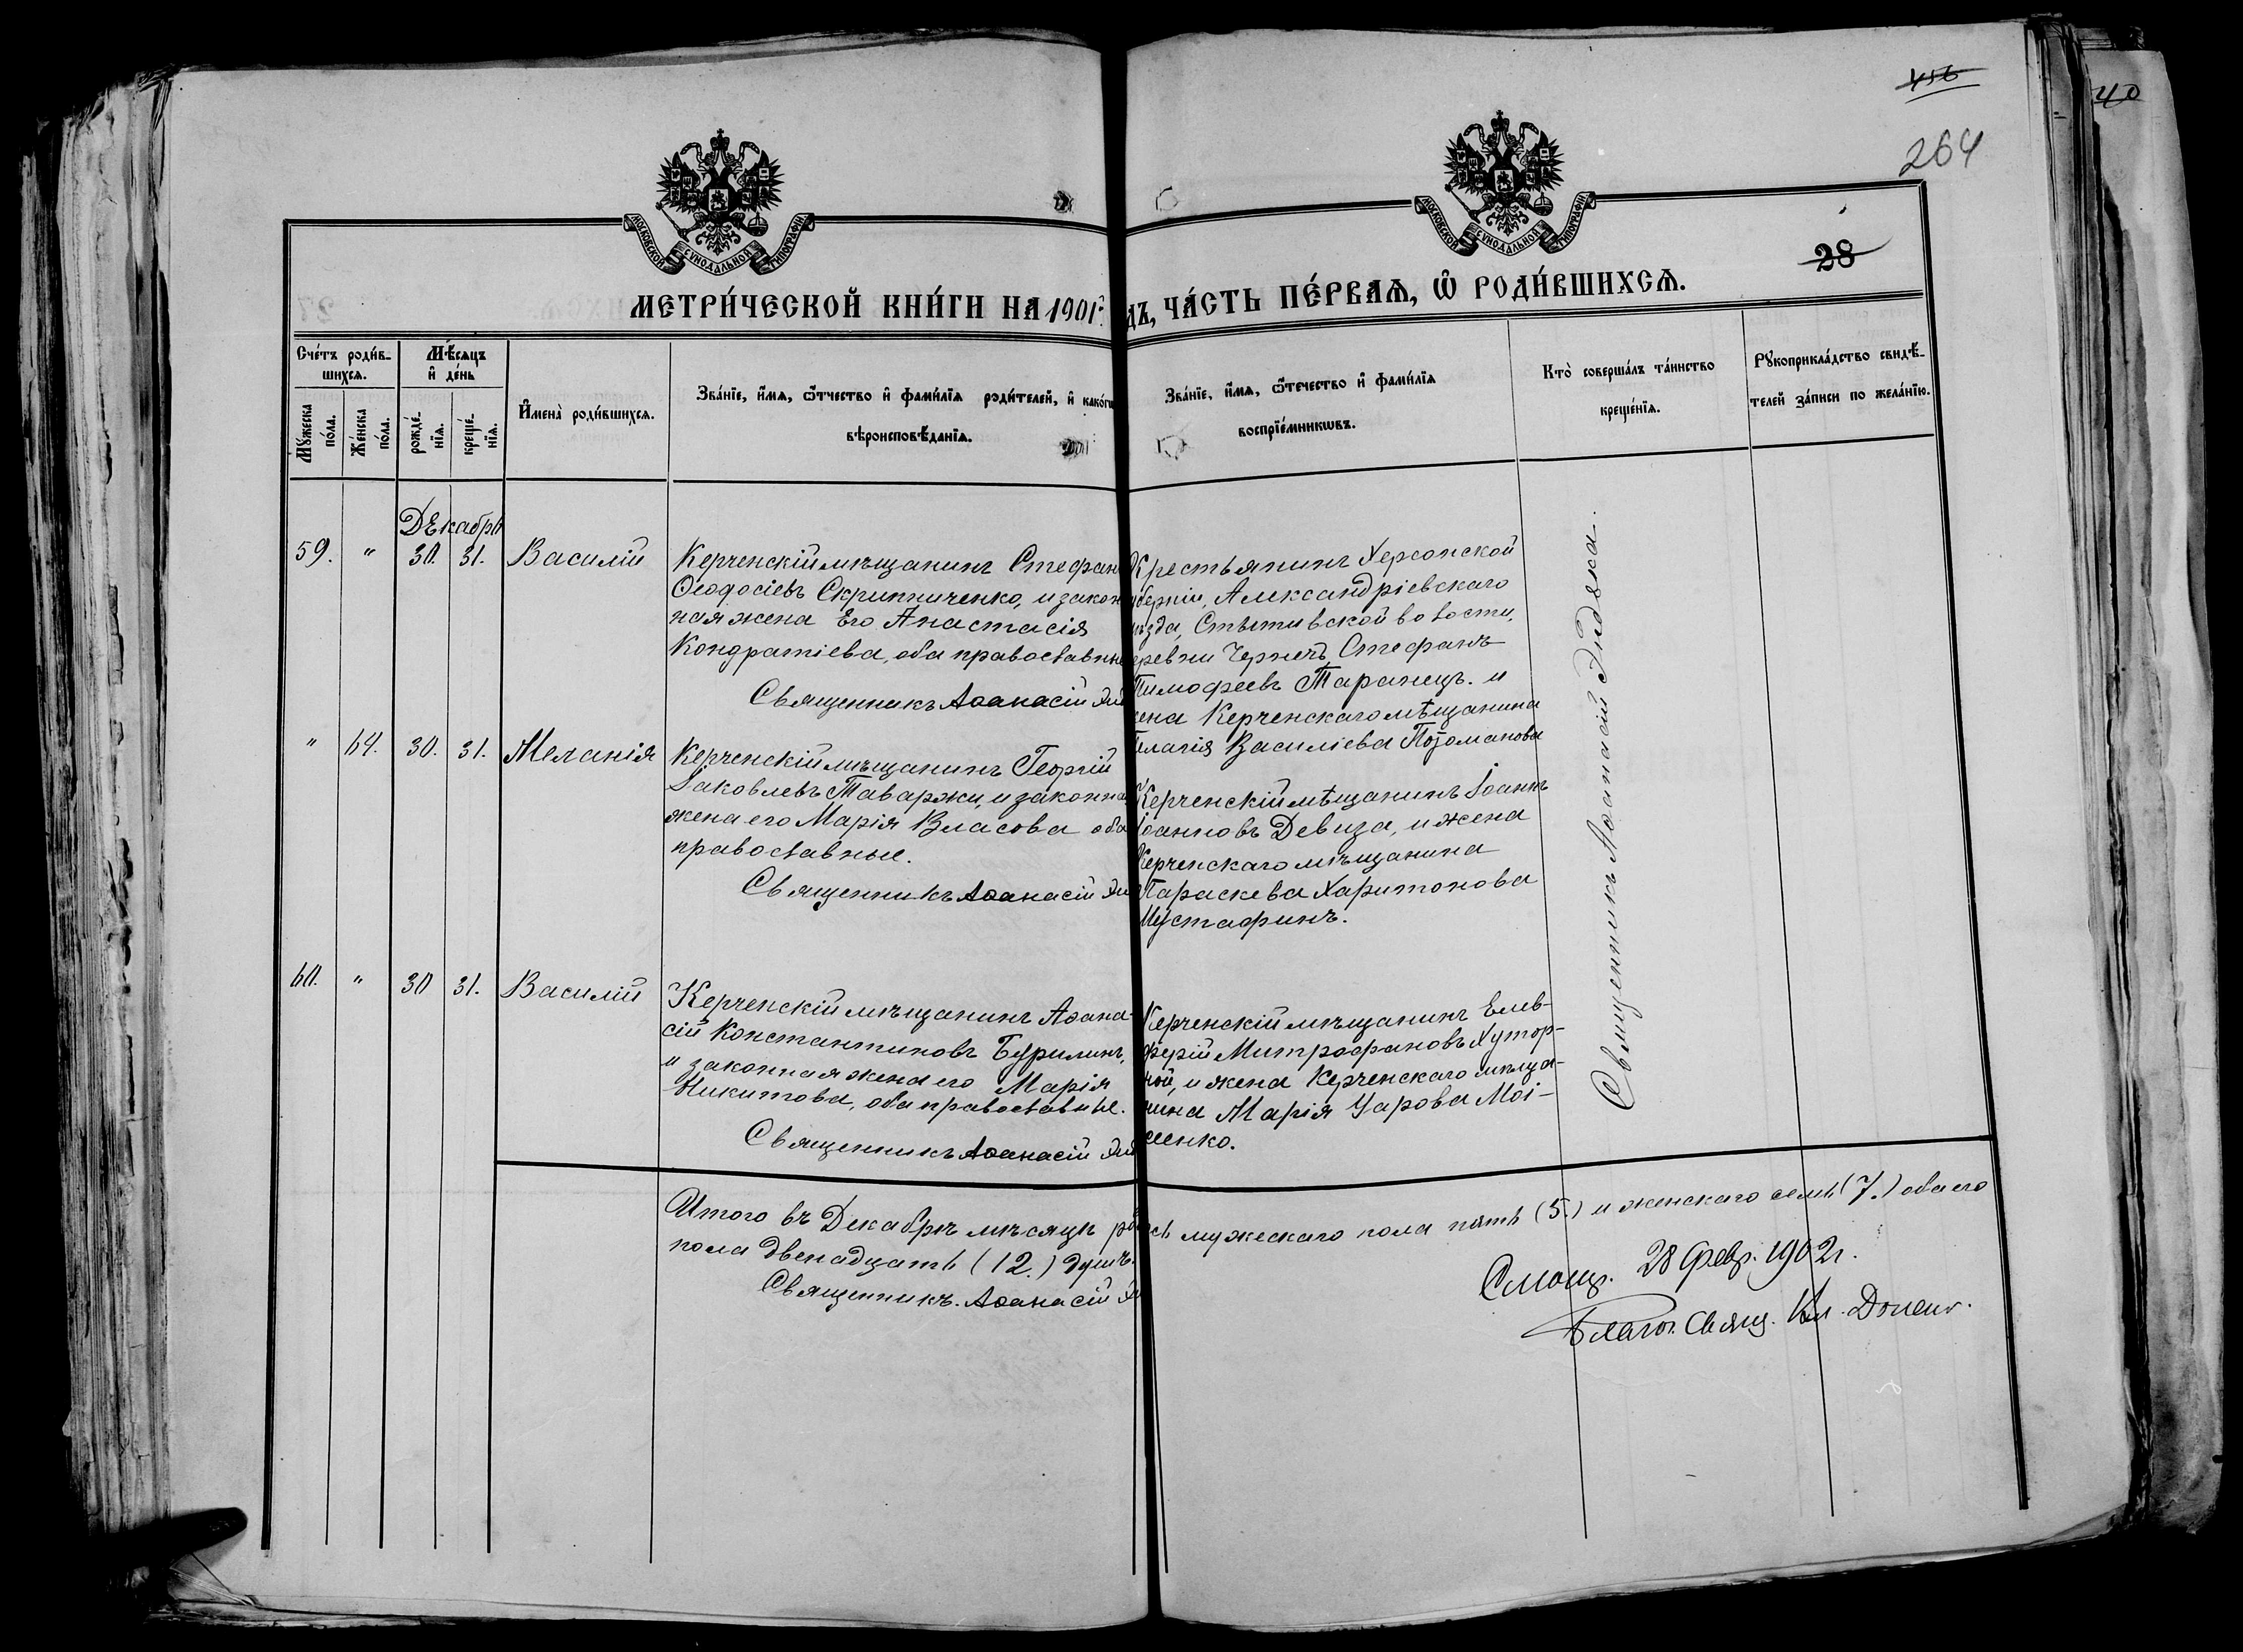 456
40
264
28
МОСКОВСКОЙ СУНОДАЛЬНОЙ ТИПОГРАФІИ
МОСКОВСКОЙ СУНОДАЛЬНОЙ ТИПОГРАФІИ
МЕТРИ́ЧЕСКОЙ КНИ́ГИ НА 1901 г. дъ, ЧА́СТЬ ПЕ́РВАѦ, Ѡ҆ РОДИ́ВШИХСѦ.
Сче́тъ роди́в-
шихсѧ.
Мꙋ́жеска по́ла.
Же́нска по́ла.
Мѣ́сѧцъ
и҆ де́нь
рожде́-
нїѧ.
креще́-
нїѧ.
И҆мена̀ роди́вшихсѧ.
Зва́нїе, и҆́мѧ, ѻ҆́тчество и҆ фами́лїѧ роди́телей, и҆ како́гѡ
вѣроисповѣ́данїѧ.
Зва́нїе, и҆́мѧ, ѻ҆́течество и҆ фами́лїѧ
воспрїе́мникѡвъ.
Кто̀ соверша́лъ та́инство
креще́нїѧ.
Рꙋкоприкла́дство свидѣ́-
телей за́писи по жела́нїю.
Декабрь
59. " 30. 31. Василій
Керченскій мѣщанинъ Стефан
Ѳеодосіевъ Скрипниченко, и закон
ная жена его Анастасія
Кондратіева, оба православны
Священникъ Аѳанасій
Крестьянинъ Херсонской
уберніи, Александріевскаго
ѣзда, волости,
еревни Стефанъ
Тимофеевъ Таранецъ. и
ена Керченскаго мѣщанина
елагія Василіева
" 64. 30. 31. Меланія
Керченскій мѣщанинъ Георгій
Іаковлевъ Таваржи, и законна
жена его Марія Власова оба
православные.
Священникъ Аѳанасій
Керченскій мѣщанинъ Іоаннъ
Іоанновъ Девиза, и жена
Керченскаго мѣщанина
Параскева Харитонова
Мустафинъ.
60. " 30 31. Василій
Керченскій мѣщанинъ Аѳана-
сій Константиновъ Бурилинъ,
и законная жена его Марія
Никитова, оба православные.
Священникъ Аѳанасій
Керченскій мѣщанинъ Елев-
ферій Митрофановъ Хутор-
ной, и жена Керченскаго мѣща-
нина Марія Уарова Мої-
сеенко.
Священникъ Аѳанасій
Итого въ Декабрѣ мѣсяцѣ ро сь мужескаго пола пять (5.) и женскаго семь (7.) обаего
пола двенадцать (12.) душъ.
Священникъ. Аѳанасій
28 Февр. 1902 г.
Благоч. Свящ.